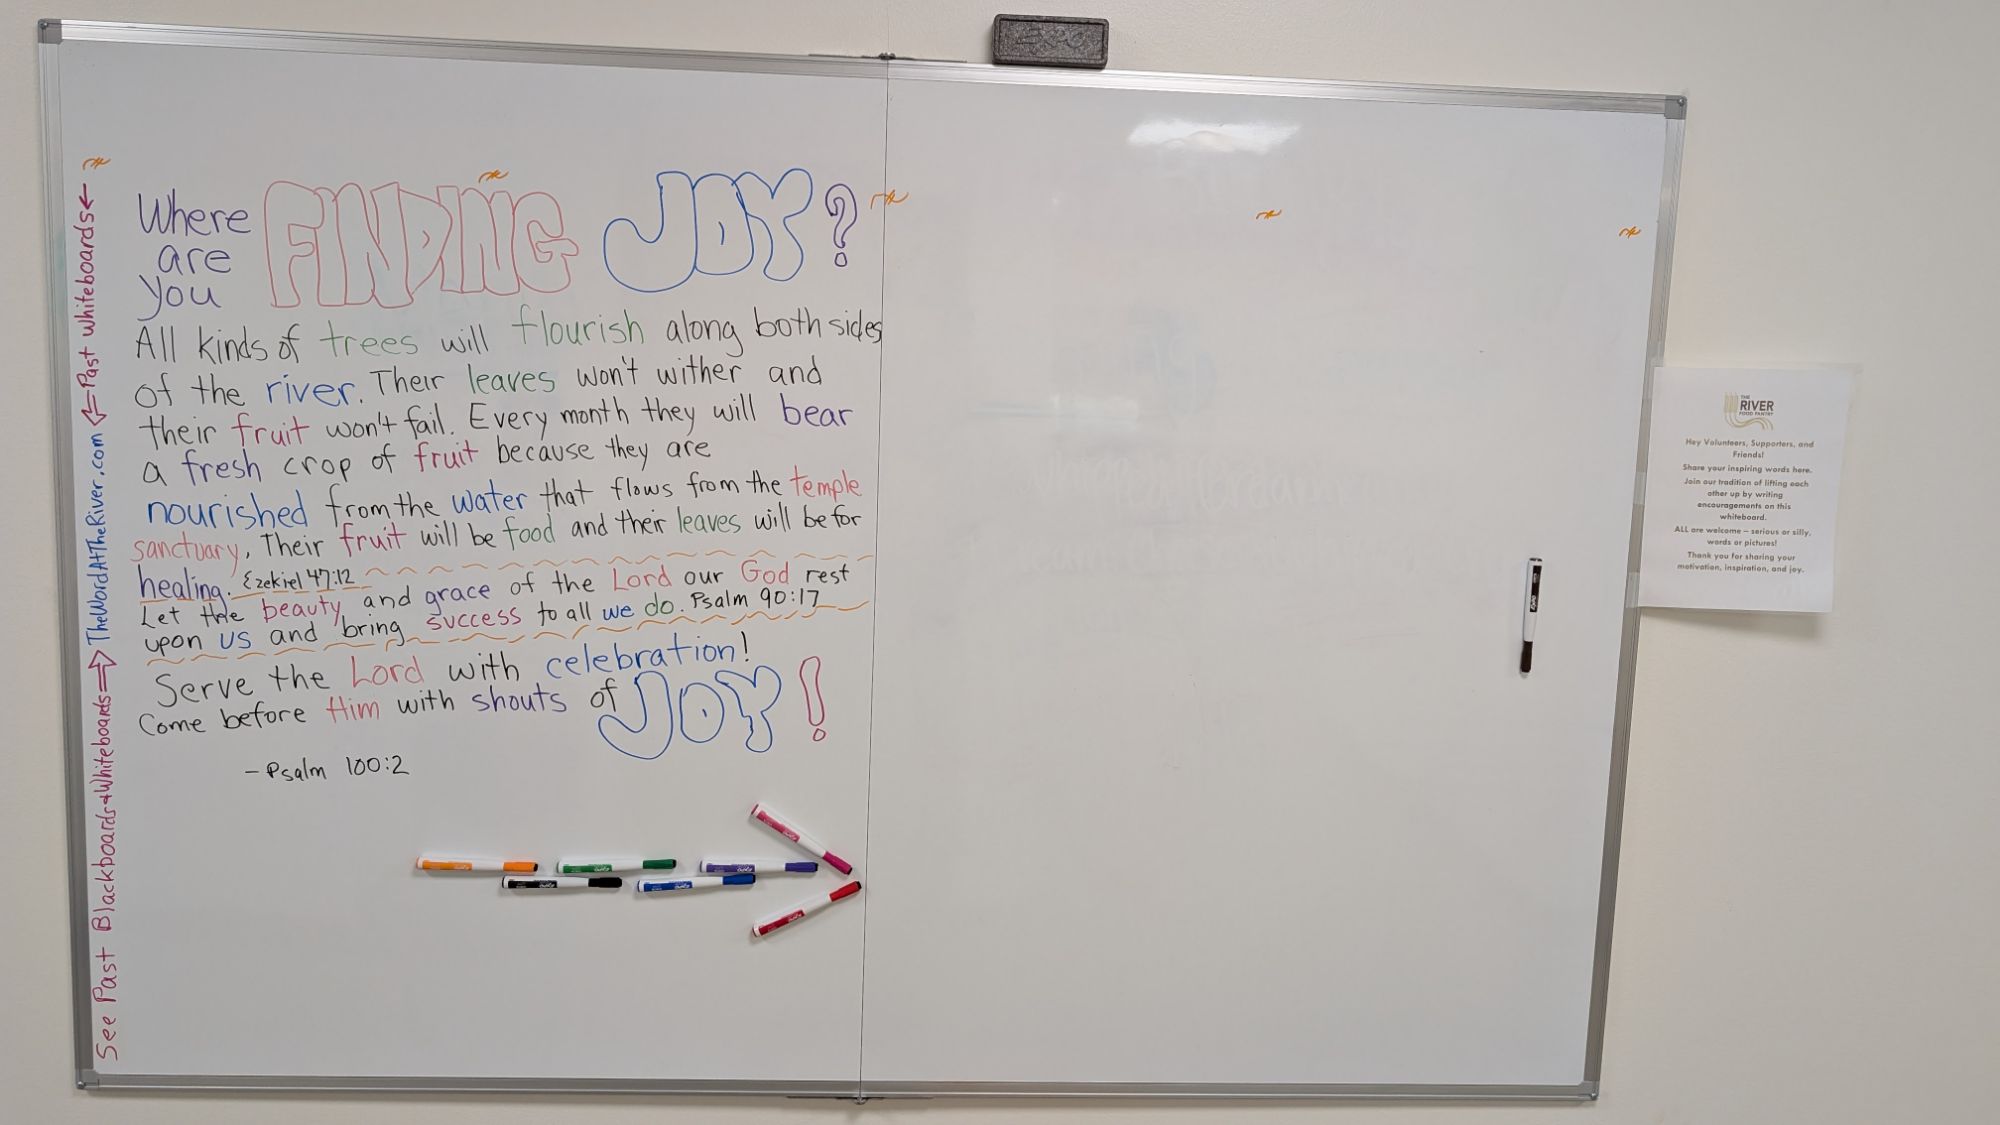 Where
are
you
FINDING JOY?
All kinds of trees will flourish along both sides
of the river. Their leaves won't wither and
their fruit won't fail. Every month they will bear
a fresh crop of fruit because they are
nourished from the water that flows from the temple
sanctuary. Their fruit will be food and their leaves will be for
healing. Ezekiel 47:12
Let the beauty and grace of the Lord our God rest
upon us and bring success to all we do. Psalm 90:17
Serve the Lord with celebration!
Come before Him with shouts of JOY!
- Psalm 100:2
See Past Blackboards+Whiteboards⇒ TheWordAtTheRiver.com ⇐Past Whiteboards←
THE
RIVER
FOOD PANTRY
Hey Volunteers, Supporters, and
Friends!
Share your inspiring words here.
Join our tradition of lifting each
other up by writing
encouragements on this
whiteboard.
ALL are welcome – serious or silly,
words or pictures!
Thank you for sharing your
motivation, inspiration, and joy.